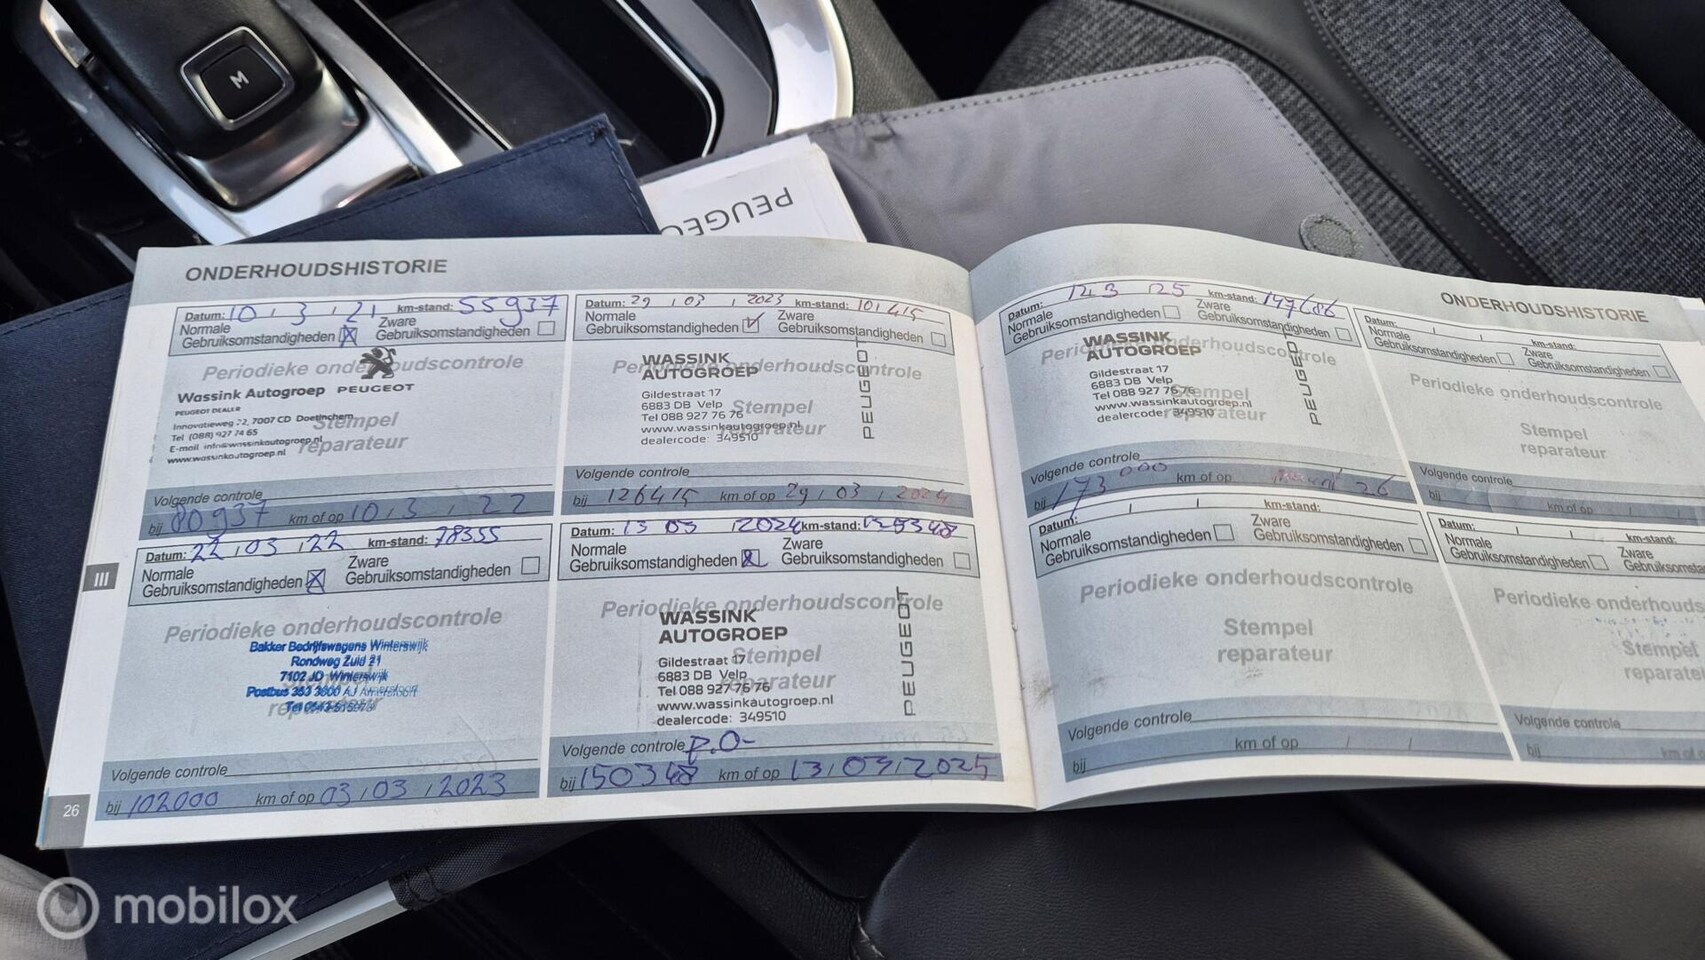 M
PEUGEO
ONDERHOUDSHISTORIE
Datum: 10 / 3 / 21 km-stand: 55937
Normale Gebruiksomstandigheden Zware Gebruiksomstandigheden
Periodieke onderhoudscontrole
Wassink Autogroep PEUGEOT
PEUGEOT DEALER
Innovatieweg 22, 7007 CD Doetinchem
Stempel
Tel (088) 927 74 65
E-mail info@wassinkautogroep.nl
reparateur
www.wassinkautogroep.nl
Volgende controle
bij 80937 km of op 10 / 3 / 22
Datum: 22 / 03 / 22 km-stand: 78355
Normale Gebruiksomstandigheden Zware Gebruiksomstandigheden
Periodieke onderhoudscontrole
Bakker Bedrijfswagens Winterswijk
Rondweg Zuid 21
7102 JD Winterswijk
Postbus 353 3800 AJ Amersfoort
Volgende controle
bij 102000 km of op 03 / 03 / 2023
III
26
Datum: 29 / 03 / 2023 km-stand: 101415
Normale Gebruiksomstandigheden Zware Gebruiksomstandigheden
Periodieke onderhoudscontrole
WASSINK
AUTOGROEP
PEUGEOT
Gildestraat 17
6883 DB Velp
Stempel
Tel 088 927 76 76
www.wassinkautogroep.nl
reparateur
dealercode: 349510
Volgende controle
bij 126415 km of op 29 / 03 / 2024
Datum: 13 03 / 2024 km-stand:
Normale Gebruiksomstandigheden Zware Gebruiksomstandigheden
Periodieke onderhoudscontrole
WASSINK
AUTOGROEP
PEUGEOT
Gildestraat 17
Stempel
6883 DB Velp
Tel 088 927 76 76
reparateur
www.wassinkautogroep.nl
dealercode: 349510
Volgende controle P.O-
bij 150348 km of op 13 / 03 / 2025
ONDERHOUDSHISTORIE
Datum: km-stand:
Normale Gebruiksomstandigheden Zware Gebruiksomstandigheden
Periodieke onderhoudscontrole
WASSINK
AUTOGROEP
PEUGEOT
Gildestraat 17
6883 DB Velp
Stempel
Tel 088 927 76 76
www.wassinkautogroep.nl
reparateur
dealercode: 349510
Volgende controle
bij 173000 km of op 26
Datum: / / km-stand:
Normale Gebruiksomstandigheden Zware Gebruiksomstandigheden
Periodieke onderhoudscontrole
Stempel
reparateur
Volgende controle
bij km of op / /
Datum: / / km-stand:
Normale Gebruiksomstandigheden Zware Gebruiksomstandigheden
Periodieke onderhoudscontrole
Stempel
reparateur
Volgende controle
bij km of op / /
Datum: / / km-stand:
Normale Gebruiksomstandigheden Zware Gebruiksomsta
Periodieke onderhouds
Stempel
reparate
Volgende controle
bij km of
mobilox